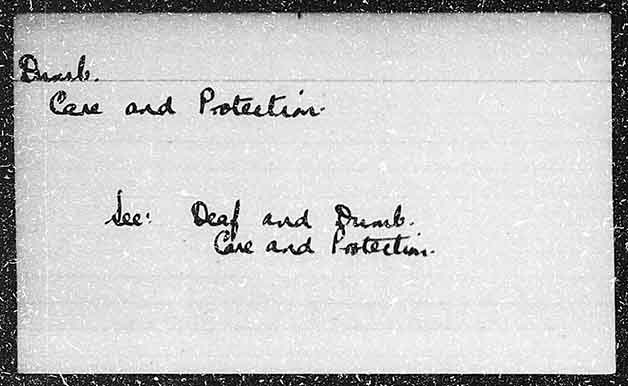 Dumb.
Care and Protection.
See: Deaf and Dumb.
Care and Protection.